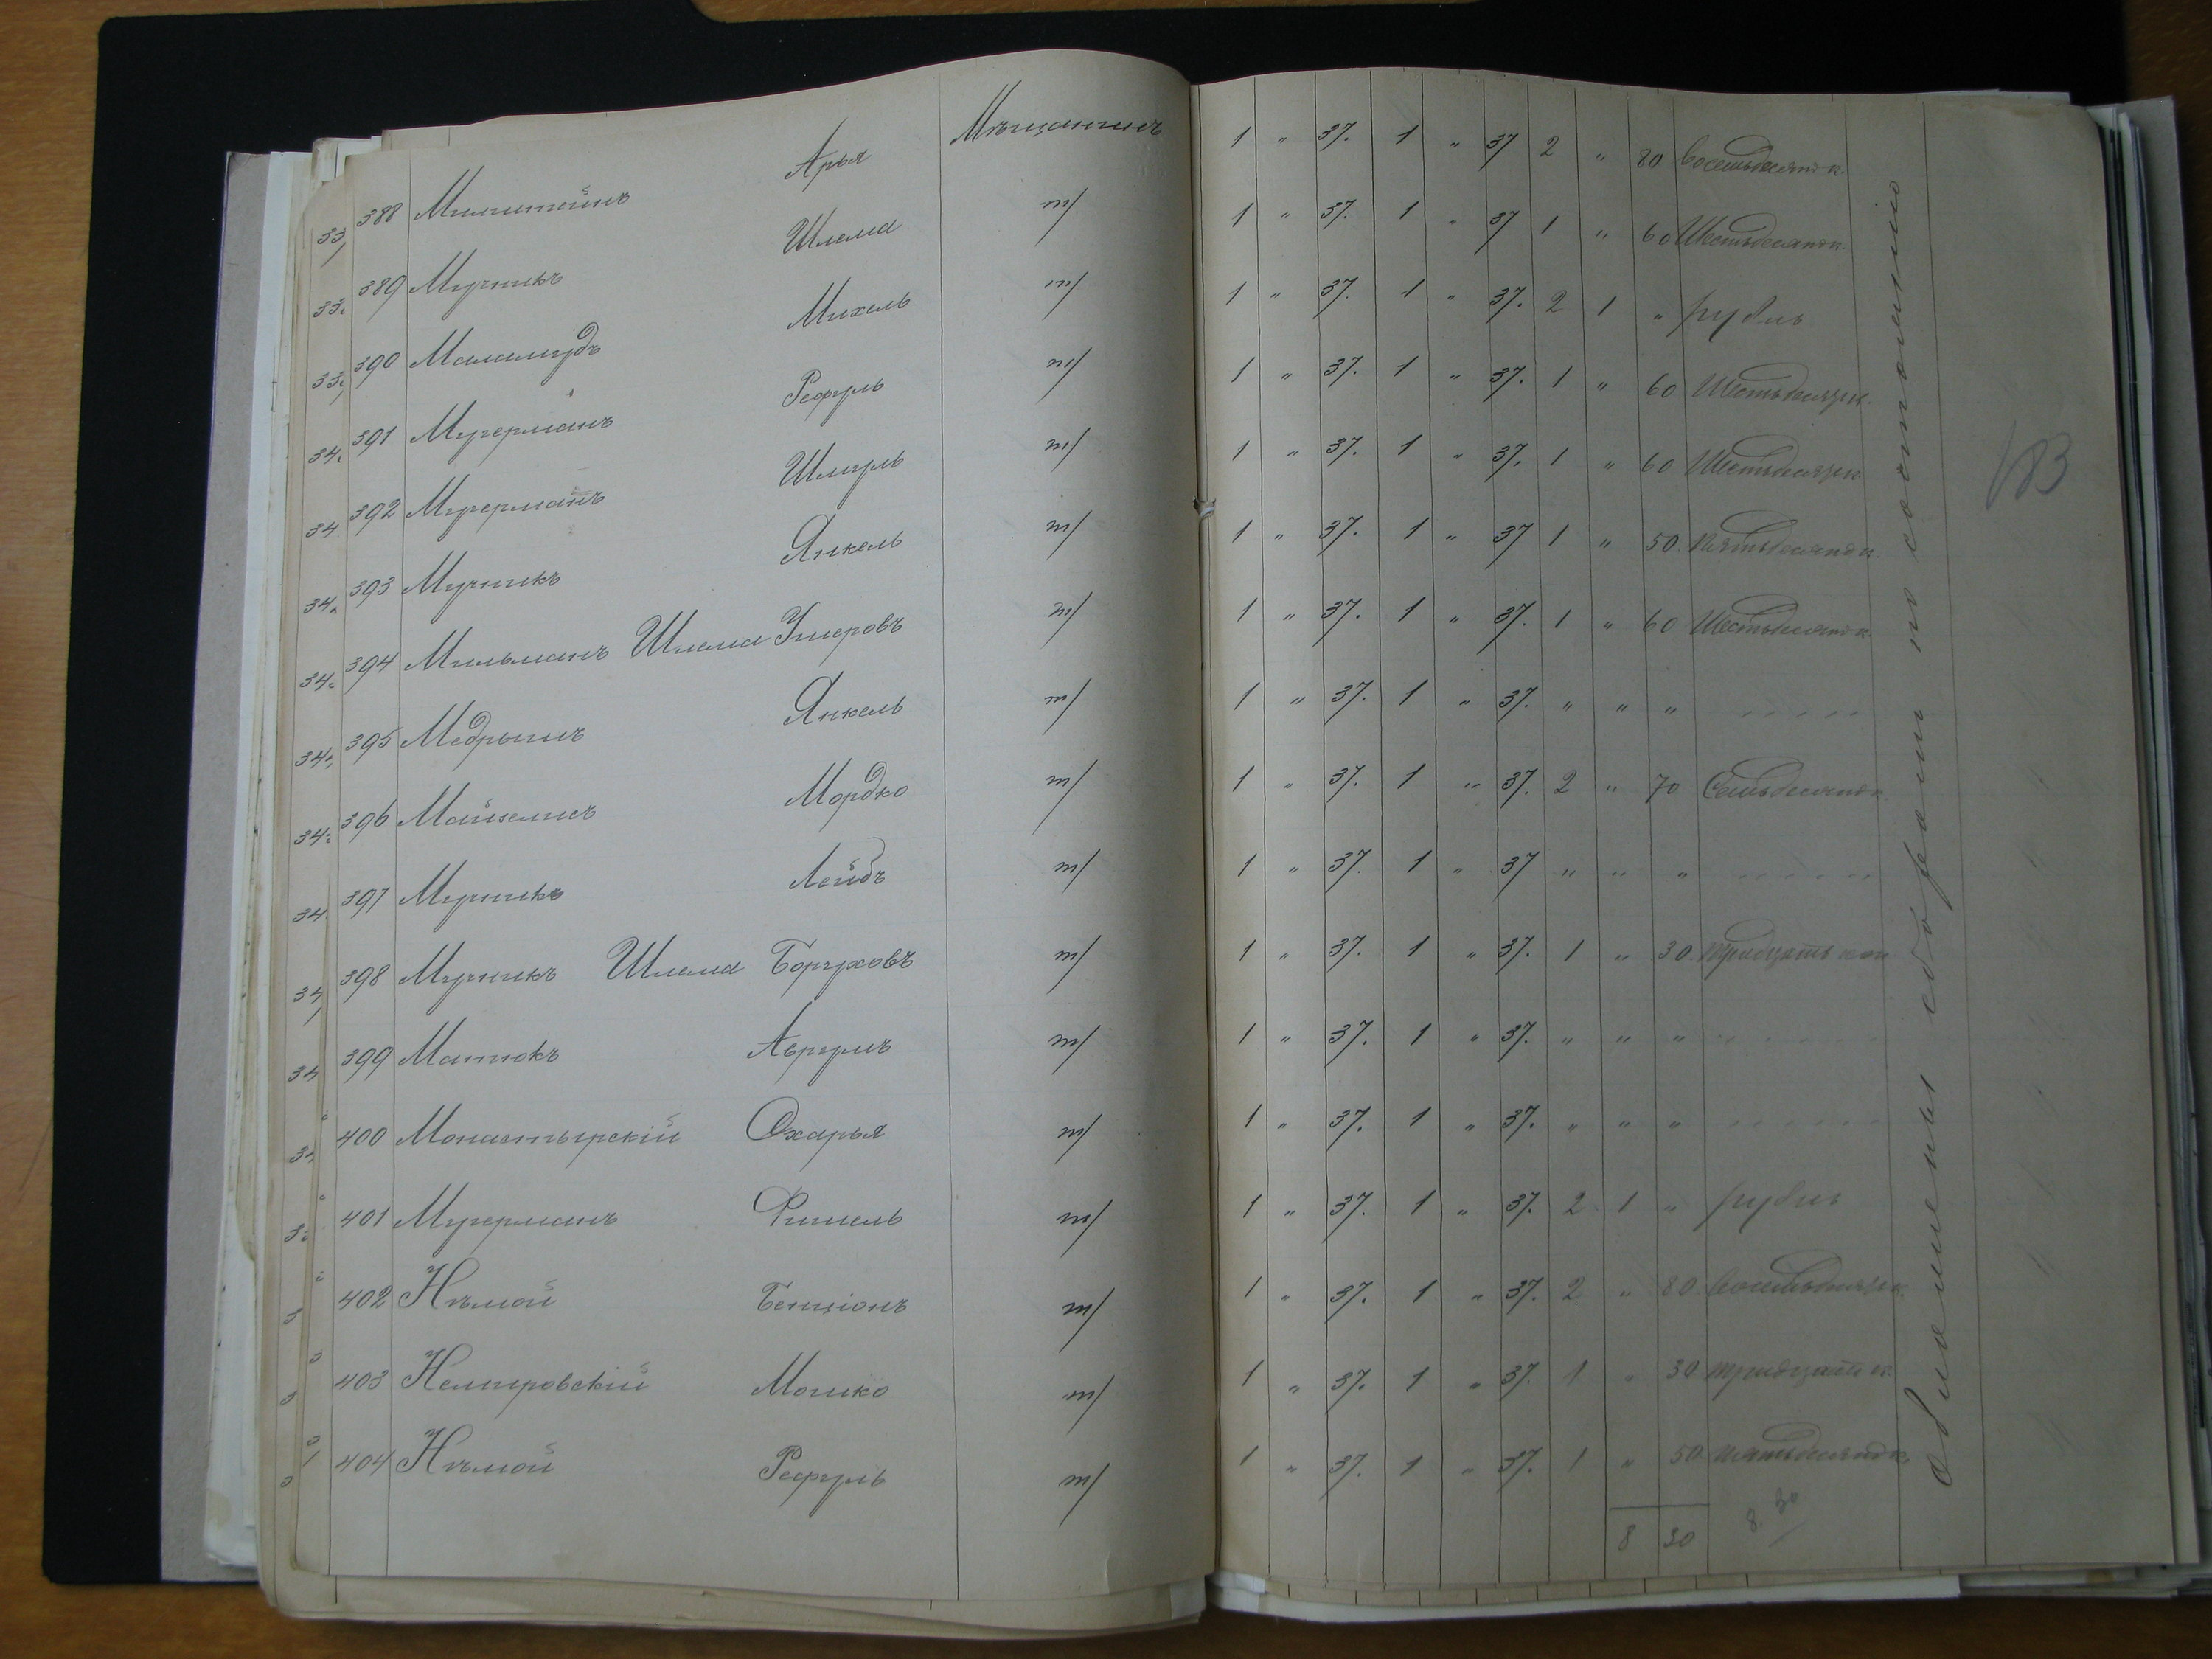 388 Мильштейнъ Арья Мѣщанинъ 1 " 37. 1 " 37 2 " 80 Восемьдесятъ к.
389 Мучникъ Шлема т/ 1 " 37. 1 " 37 1 " 60 Шестьдесятъ к.
390 Маламудъ Михель т/ 1 " 37. 1 " 37. 2 1 " рубль
391 Мугерманъ Рефуль т/ 1 " 37. 1 " 37. 1 " 60 Шестьдесятъ к.
392 Мугерманъ Шмуль т/ 1 " 37. 1 " 37. 1 " 60 Шестьдесятъ к.
393 Мучникъ Янкель т/ 1 " 37. 1 " 37 1 " 50 Пятьдесятъ к.
394 Мильманъ Шлема Умеровъ т/ 1 " 37. 1 " 37. 1 " 60 Шестьдесятъ к.
395 Медрышъ Янкель т/ 1 " 37. 1 " 37. " " "
396 Майзелисъ Мордко т/ 1 " 37. 1 " 37. 2 " 70 Семьдесятъ к.
397 Мучникъ Лейбъ т/ 1 " 37. 1 " 37 " " "
398 Мучникъ Шлема Боруховъ т/ 1 " 37. 1 " 37. 1 " 30 тридцать коп
399 Матюкъ Аврумъ т/ 1 " 37. 1 " 37. " " "
400 Монастырскій Охарья т/ 1 " 37. 1 " 37. " " "
401 Мугерманъ Фишель т/ 1 " 37. 1 " 37. 2 1 " рубль
402 Нѣмой Бенціонъ т/ 1 " 37. 1 " 37. 2 " 80 Восемьдесятъ к.
403 Немировскій Мошко т/ 1 " 37. 1 " 37. 1 " 30 тридцать к.
404 Нѣмой Рефуль т/ 1 " 37. 1 " 37. 1 " 50 пятьдесятъ к.
8 30
8. 30
обложены сборомъ по состоянію
183